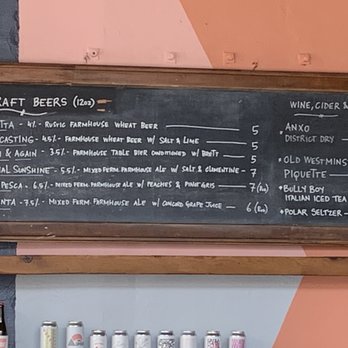 RAFT BEERS (12oz)
TTA - 4% - RUSTIC FARMHOUSE WHEAT BEER 5
CASTING - 4.5% FARMHOUSE WHEAT BEER W/ SALT & LIME 5
& AGAIN - 3.5% - FARMHOUSE TABLE BIER CONDITIONED W/ BRETT 5
AL SUNSHINE - 5.5% - MIXED FERM. FARMHOUSE ALE W/ SALT & CLEMENTINE - 7
PESCA - 6.5% - MIXED FERM. FARMHOUSE ALE W/ PEACHES & PINOT GRIS 7
NTA - 7.5% - MIXED FERM. FARMHOUSE ALE W/ CONCORD GRAPE JUICE 6
WINE, CIDER &
• ANXO
DISTRICT DRY
• OLD WESTMINS
PIQUETTE
• BULLY BOY
ITALIAN ICED TEA
• POLAR SELTZER